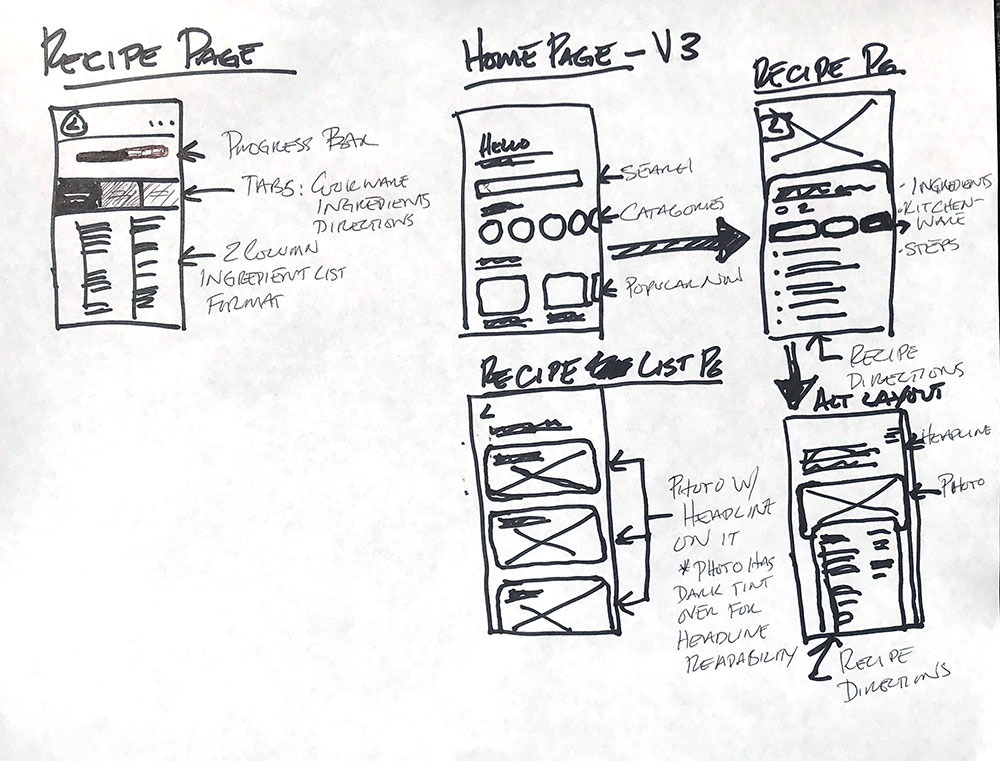 RECIPE PAGE
PROGRESS BAR
TABS: COOKWARE
INGREDIENTS
DIRECTIONS
2 COLUMN
INGREDIENT LIST
FORMAT
HOME PAGE - V3
HELLO
SEARCH
CATAGORIES
POPULAR NOW
RECIPE PG
- INGREDIENTS
• KITCHEN-
WARE
- STEPS
RECIPE
DIRECTIONS
RECIPE LIST PG
PHOTO W/
HEADLINE
ON IT
* PHOTO HAS
DARK TINT
OVER FOR
HEADLINE
READABILITY
ALT LAYOUT
HEADLINE
PHOTO
RECIPE
DIRECTIONS